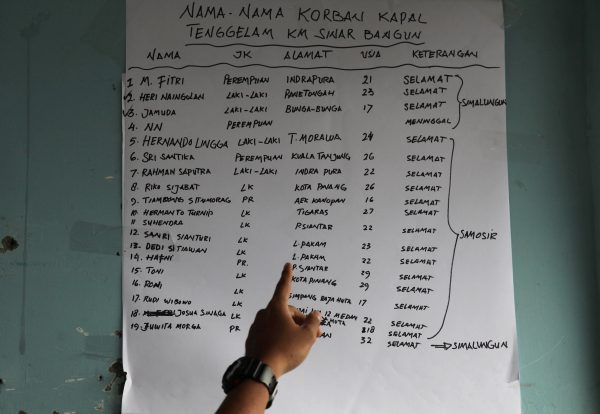 NAMA-NAMA KORBAN KAPAL
TENGGELAM KM SINAR BANGUN
NAMA JK ALAMAT USIA KETERANGAN
1 M. FITRI PEREMPUAN INDRAPURA 21 SELAMAT
2. HERI NAINGOLAN LAKI-LAKI PANETONGAH 23 SELAMAT
3. JAMUDA LAKI-LAKI BUNGA-BUNGA 17 SELAMAT
SIMALUNGUN
4. NN PEREMPUAN MENINGGAL
5. HERNANDO LINGGA LAKI-LAKI T. MORAWA 24 SELAMAT
6. SRI SANTIKA PEREMPUAN KUALA TANJUNG 26 SELAMAT
7. RAHMAN SAPUTRA LAKI-LAKI INDRA PURA 22 SELAMAT
8. RIKO SIJABAT LK KOTA PINANG 26 SELAMAT
9. TIAMBUNG SITUMORAG PR AEK KANOPAN 16 SELAMAT
10. HERMANTO TURNIP LK TIGARAS 27 SELAMAT
11 SUHENDRA
12. SANRI SIANTURI LK P.SIANTAR 22 SELAMAT
SAMOSIR
13. DEDI SITIAWAN LK L. PAKAM 23 SELAMAT
14. HAFNI PR. L. PAKAM 22 SELAMAT
15. TONI LK P. SIANTAR 29 SELAMAT
16. RONI LK KOTA PINANG 29 SELAMAT
17. RUDI WIBOWO LK SIMPANG RAJA HUTA 17 SELAMAT
18. JOSUA SINAGA LK 12 MEDAN 22 SELAMAT
19. JUWITA MORGA PR 318 SELAMAT
32 SELAMAT SIMALUNGUN